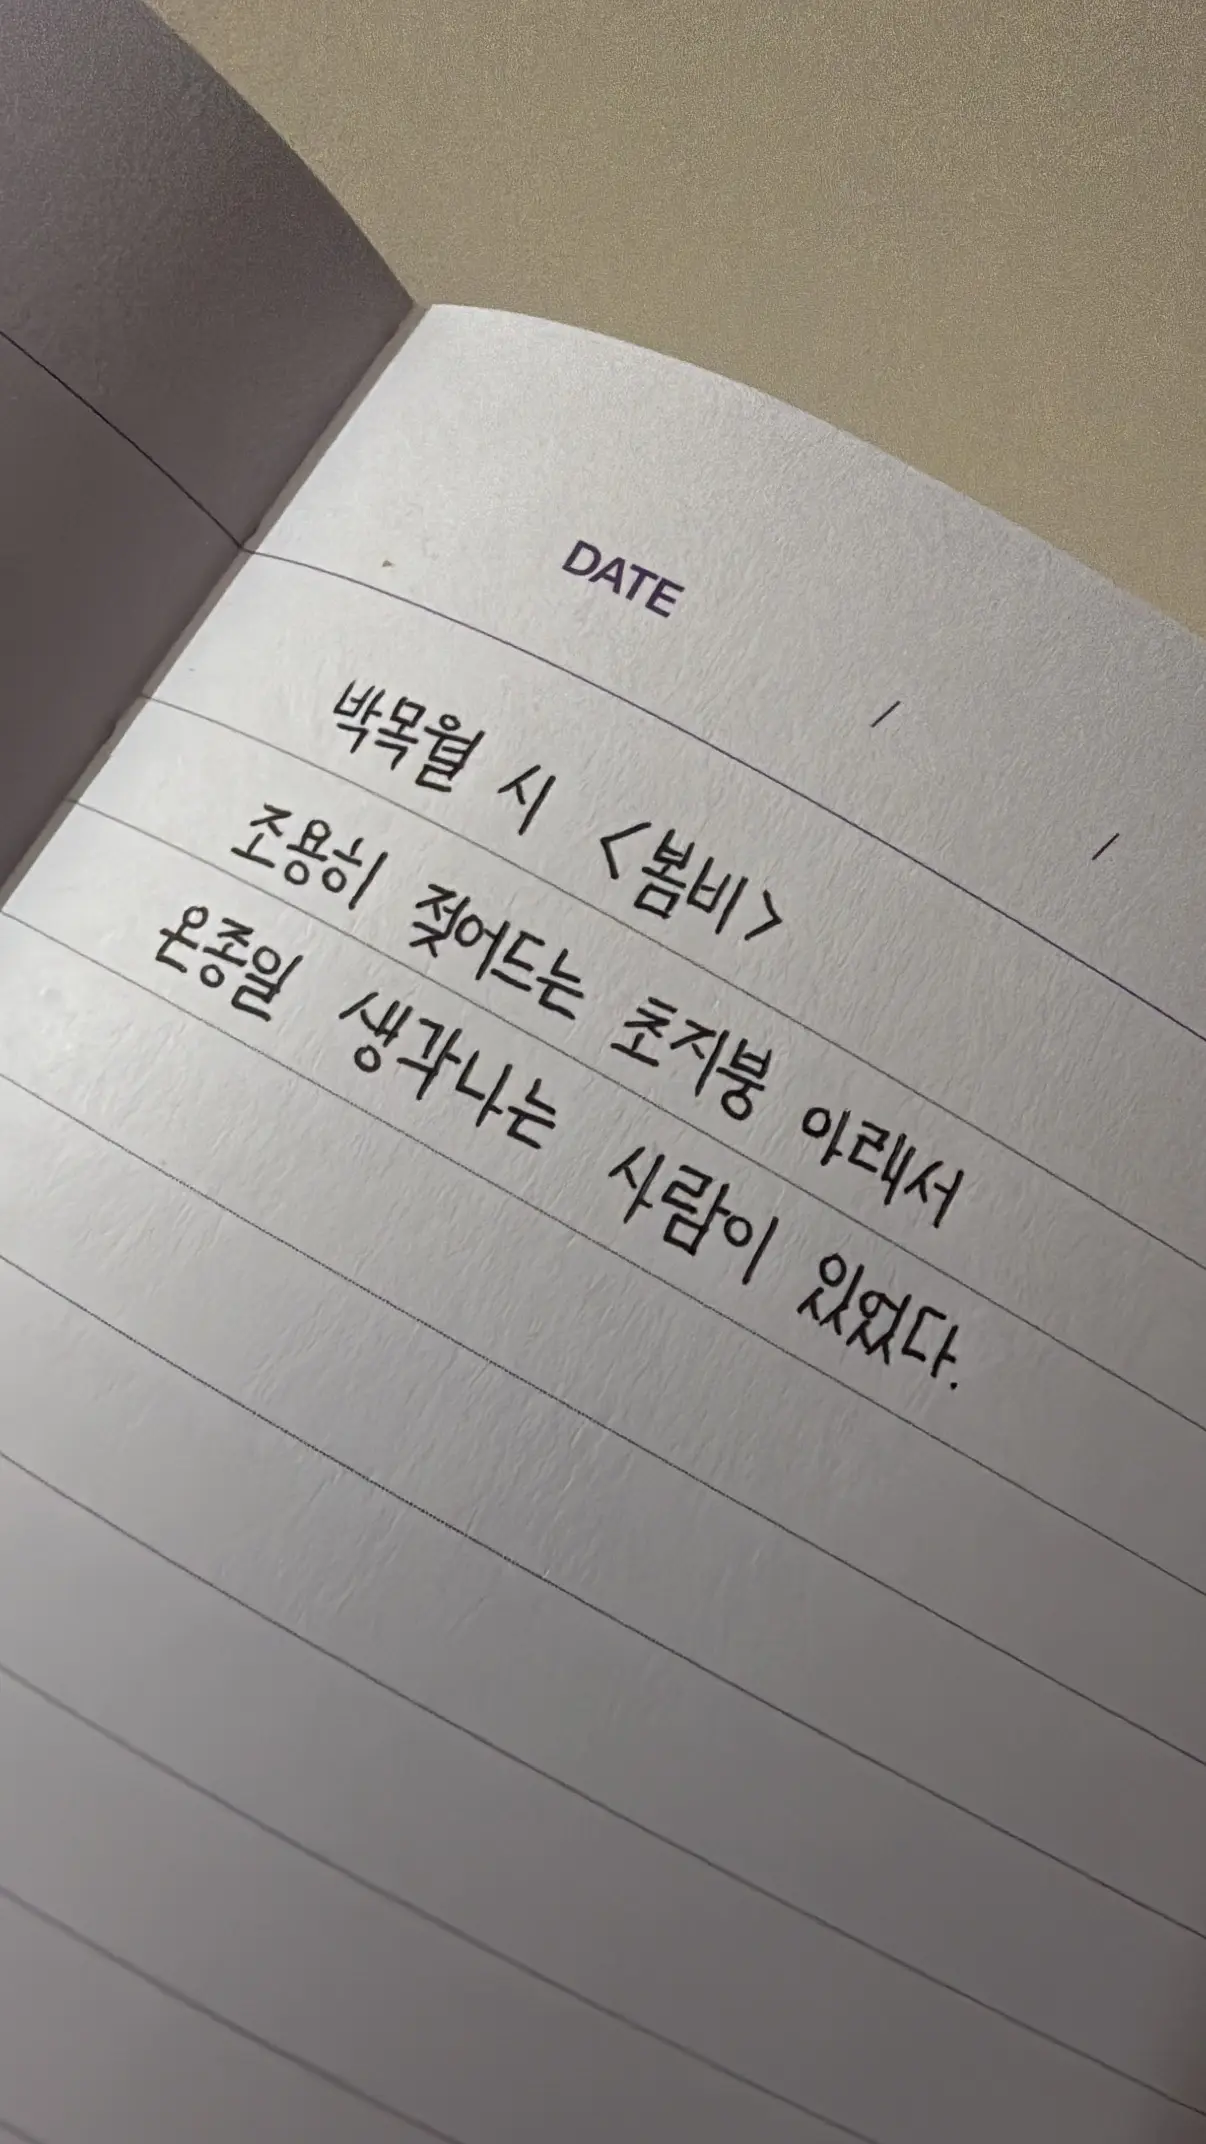 DATE / /
박목월 시 <봄비>
조용히 젖어드는 초지붕 아래서
온종일 생각나는 사람이 있었다.